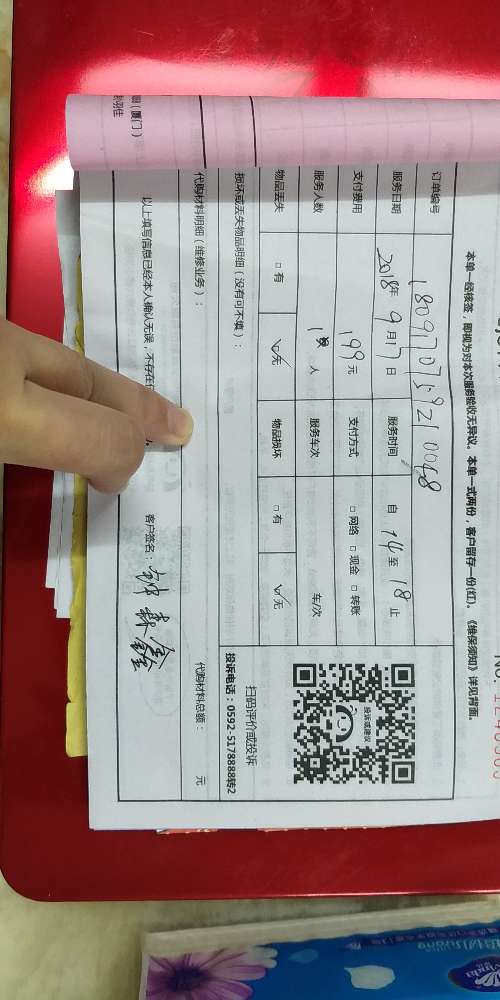 本单一经核签，即视为对本次服务验收无异议。本单一式两份，客户留存一份(红)。《维保须知》详见背面。
订单编号 180917075921 0048
服务日期 2018年 9月 17日 服务时间 自 14 至 18 止
支付费用 199 元 支付方式 □ 网络 □ 现金 □ 转账
服务人数 1 人 服务车次 车/次
物品丢失 □ 有 ☑ 无 物品损坏 □ 有 ☑ 无
损坏或丢失物品明细（没有可不填）：
扫码评价或投诉
投诉电话：0592-5178888转2
投诉或建议
代购材料明细（维修业务）：
代购材料总额： 元
以上填写信息已经本人确认无误，不存在
客户签名： 森鑫
（厦门）
Vinda